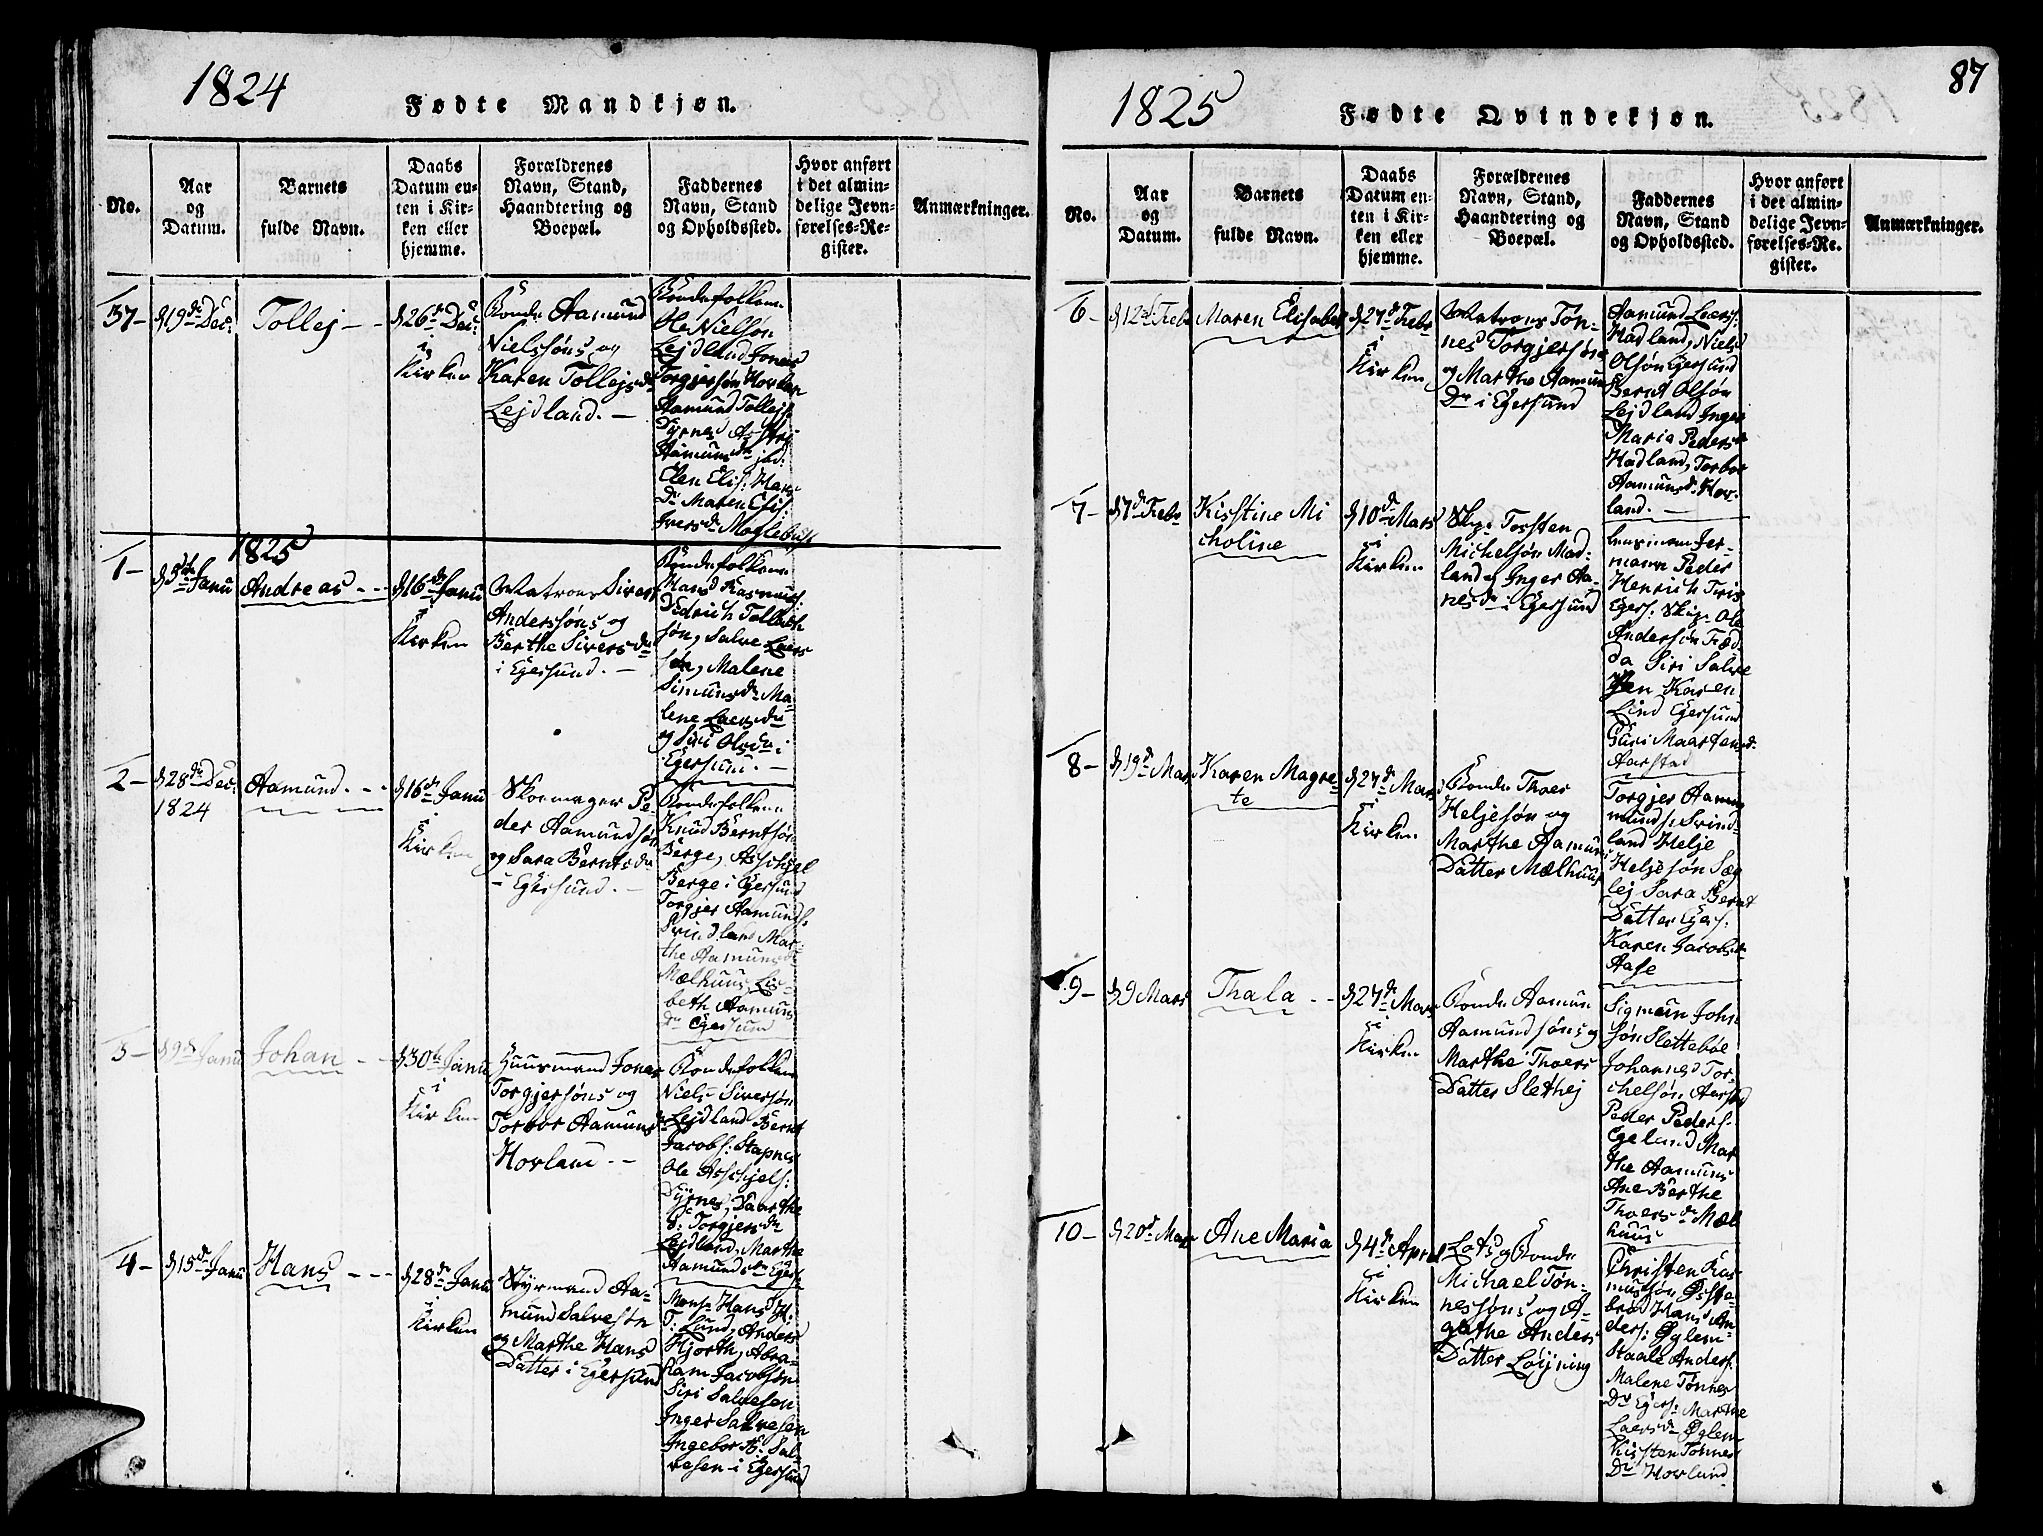 1824
Fødte Mandkjøn.
No.
Aar
og
Datum.
Barnets
fulde Navn.
Daabs
Datum en-
ten i Kir-
ken eller
hjemme.
Forældrenes
Navn, Stand,
Haandtering og
Boepæl.
Faddernes
Navn, Stand
og Opholdssted.
Hvor anført
i det almin-
delige Jevn-
førelses-Re-
gister.
Anmærkninger.
37-
d 19de Dec:
Tollej - -
d 26de Dec:
i
Kirken
Bonde Aamund
Nielssøns og
Karen Tollejsdr
Lejdland. -
Bondefolkene
Ole Nielsøn
Lejdland Jonas
Torgjersøn Hovlan
Aamund Tollejs:
Dyrnes Astrj
Aamunsdr ibd:
Elen Elis: Hans
Dr Maren Elis
Iversdr Moglebust
1825
1-
d 5te Janu
Andreas - -
d 16de Janu
i
Kirken
Matrons Sivert
Anderssøns og
Berthe Siversdr
i Egersund. -
Bondefolkene
Hans Rasmus:
Didrich Tollach
søn, Salve Laers
søn, Malene
Simunsdr Ma-
lene Laersdr
og Siri Olsdr i
Egersun. -
2-
d 28de Dec:
1824
Aamund. - -
d 16de Janu
i
Kirken
Skoemager Pe-
der Aamundsøn
og Sara Berntsdr
i Egersund. -
Bondefolkene
Knud Berntsøn
Berge, Asschjel
Berge i Egersund
Torgjer Aamunds:
Svindland Mar-
the Aamunsdr
Mælhuus, Lis-
beth Aamuns
Dr Egersund
3-
d 9de Janu
Johan - -
d 30te Janu
i
Kirken
Huusmand Jonas
Torgjersøns og
Torbor Aamunsdr
Hovland - -
Bondefolkene
Niels Siversøn
Lejdland Bernt
Jacobs: Stapnes
Ole Asschjels:
Dyrnes, Daarthe
d: Torgjersdr
Lejdland, Marthe
Aamundsdr Egers:
4-
d 15de Janu
Hans - - -
d 28de Janu
i
Kirken
Styrmand Aa-
mund Salvesøn
og Marthe Hans
Datter i Egersund
Mons: Hans H:
T: Lund, Anders
Hjorth, Abra-
ham Jacobsøn
Siri Salvesen
Inger Salvesen
Ingebor A: Sal-
vesen i Egersund
1825
Fødte Qvindekjøn.
87
No.
Aar
og
Datum.
Barnets
fulde Navn.
Daabs
Datum en-
ten i Kir-
ken eller
hjemme.
Forældrenes
Navn, Stand,
Haandtering og
Boepæl.
Faddernes
Navn, Stand
og Opholdssted.
Hvor anført
i det almin-
delige Jevn-
førelses-Re-
gister.
Anmærkninger.
6-
d 12te Febr
Maren Elisabet
d 27de Febr
i
Kirken
Matrons Tøn-
nes Torgjersøns
og Marthe Aamuns
Dr i Egersund
Aamund Laers:
Hadland, Niels
Olsøn Egersund
Bernt Olsøn
Lejdland Inger
Maria Pedersdr
Hadland, Torbor
Aamunsdr Hov-
land. -
7-
d 7de Febr
Kisstine Mi
choline
d 10de Mars
i
Kirken
Skip: Torsten
Michelsøn Mad-
land og Inger Aa-
nesdr i Egersund
mann Peder
Henrich Friis
Egers: Skip: Ole
Andersøn Fræd-
da Siri Salve
sen Karen
Lind Egersund
Guri Maartensd:
Aarstad
8-
d 19de Mar:
Karen Magre-
te
d 27de Mars
i
Kirken
Bonde Thoer
Heljesøn og
Marthe Aamuns
Datter Mælhuus
Torgjer Aamu
munds: Svind-
land Helje
Heljesøn Sæg
lej Sara Bernt
Datter Egers:
Karen Jacobsdr
Aase
9-
d 9 Mars
Thala - -
d 27de Mars
i
Kirken
Bonde Aamun
Aamundsøns og
Marthe Thoers
Datter Slethej
Sigmun John
søn Slettebøe
Johannes Tor-
chelsøn Aarstad
Peder Peders:
Egeland Mar
the Aamuns
Ane Berthe
Thoersdr Mæl
huus
10-
d 20de Mars
Ane Maria
d 4de April
i
Kirken
Lots og Bonde
Michael Tøn-
nessøns og A-
gathe Anders
Datter Løjning
Christen Ras
mussøn Øsste-
brød Hans An
ders: Øglem-
Staale Anders:
Malene Tønnes
Dr Egers: Marthe
Laersdr Øglem
Kisten Tønnes
Dr Hovland